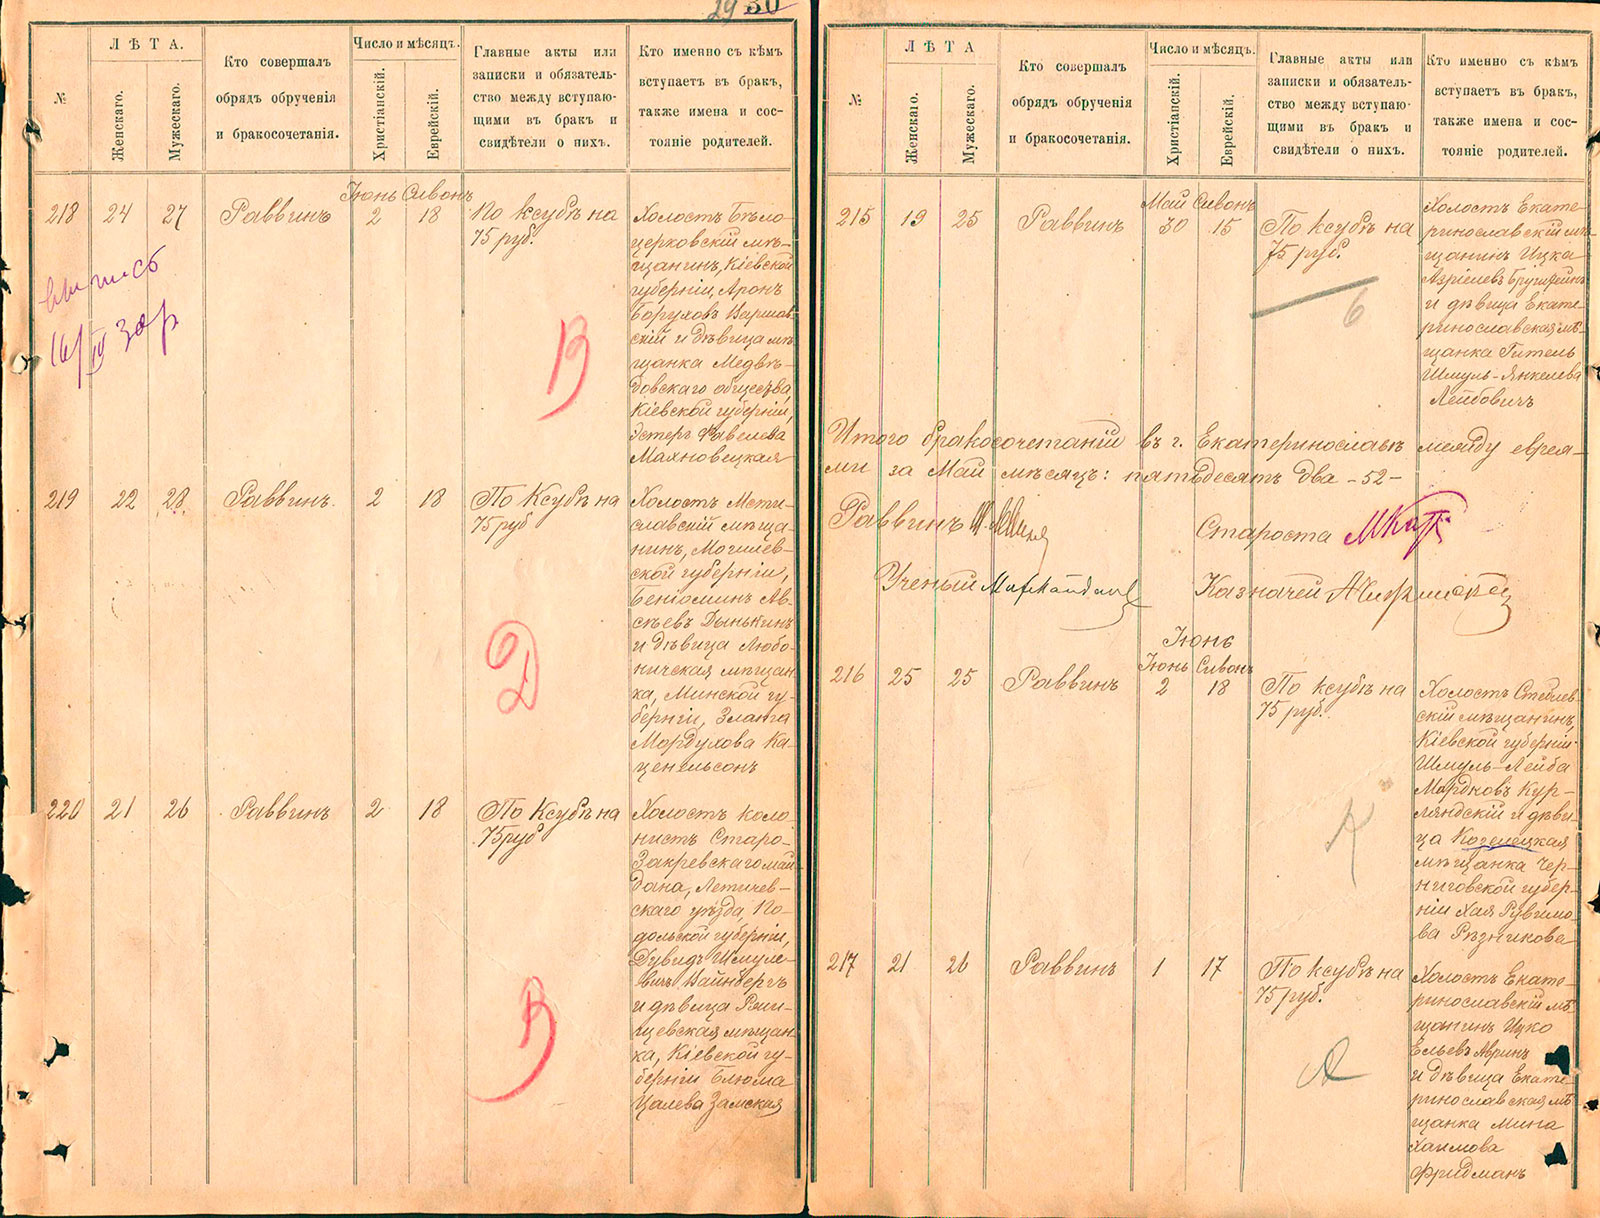 29 30
ЛѢТА.
№
Женскаго.
Мужескаго.
Кто совершалъ
обрядъ обрученія
и бракосочетанія.
Число и мѣсяцъ.
Христіанскій.
Еврейскій.
Главные акты или
записки и обязатель-
ство между вступаю-
щими въ бракъ и
свидѣтели о нихъ.
Кто именно съ кѣмъ
вступаетъ въ бракъ,
также имена и сос-
тояніе родителей.
Іюнь Сивонъ
218 24 27 Раввинъ 2 18 По ксубѣ на
75 руб.
Холостъ Бѣло-
церковскій мѣ-
щанинъ, Кіевской
губерніи, Аронъ
Боруховъ Варшав-
скій и дѣвица мѣ-
щанка Медвѣ-
довскаго общества,
Кіевской губерніи,
Эстеръ Фавелева
Махновецкая
выпись
16/IV
В
219 22 28 Раввинъ. 2 18 По Ксубѣ на
75 руб
Холостъ Мсти-
славскій мѣща-
нинъ, Могилев-
ской губерніи,
Беніоминъ Ав-
сѣевъ Дынькинъ
и дѣвица Любо-
ничская мѣщан-
ка, Минской гу-
берніи, Злата
Мордухова Ка-
ценельсонъ
Д
220 21 26 Раввинъ 2 18 По Ксубѣ на
75 руб
Холостъ коло-
нистъ Старо-
Закревскаго май-
дана, Летичев-
скаго уѣзда, По-
дольской губерніи,
Дувидъ Шмуле-
вичъ Вайнбергъ
и дѣвица Ржи-
щевская мѣщан-
ка, Кіевской гу-
берніи Блюма
Цалева Замская
В
ЛѢТА
№
Женскаго.
Мужескаго.
Кто совершалъ
обрядъ обрученія
и бракосочетанія.
Число и мѣсяцъ.
Христіанскій.
Еврейскій.
Главные акты или
записки и обязатель-
ство между вступаю-
щими въ бракъ и
свидѣтели о нихъ.
Кто именно съ кѣмъ
вступаетъ въ бракъ,
также имена и сос-
тояніе родителей.
Май Сивонъ
215 19 25 Раввинъ 30 15 По ксубѣ на
75 руб.
Холостъ Екате-
ринославскій мѣ-
щанинъ Ицка
Азріелевъ
и дѣвица Екате-
ринославская мѣ-
щанка Гитель
Шмуль-Янкелева
Лейбовичъ
6
Итого бракосочетаній въ г. Екатеринославѣ между еврея-
ми за Май мѣсяцъ: пятьдесятъ два -52-
Раввинъ Староста
Ученый Казначей
Іюнь
Іюнь Сивонъ
216 25 25 Раввинъ 2 18 По ксубѣ на
75 руб.
Холостъ
скій мѣщанинъ,
Кіевской губерніи
Шмуль-Лейба
Мордковъ Кур-
ляндскій и дѣви-
ца Козелецкая
мѣщанка Чер-
ниговской губер-
ніи Хая Рувимо-
ва Рѣзникова
217 21 26 Раввинъ 1 17 По ксубѣ на
75 руб.
Холостъ Екате-
ринославскій мѣ-
щанинъ Ицко
Ельевъ Авринъ
и дѣвица Екате-
ринославская мѣ-
щанка Мина
Хаимова
Фридманъ